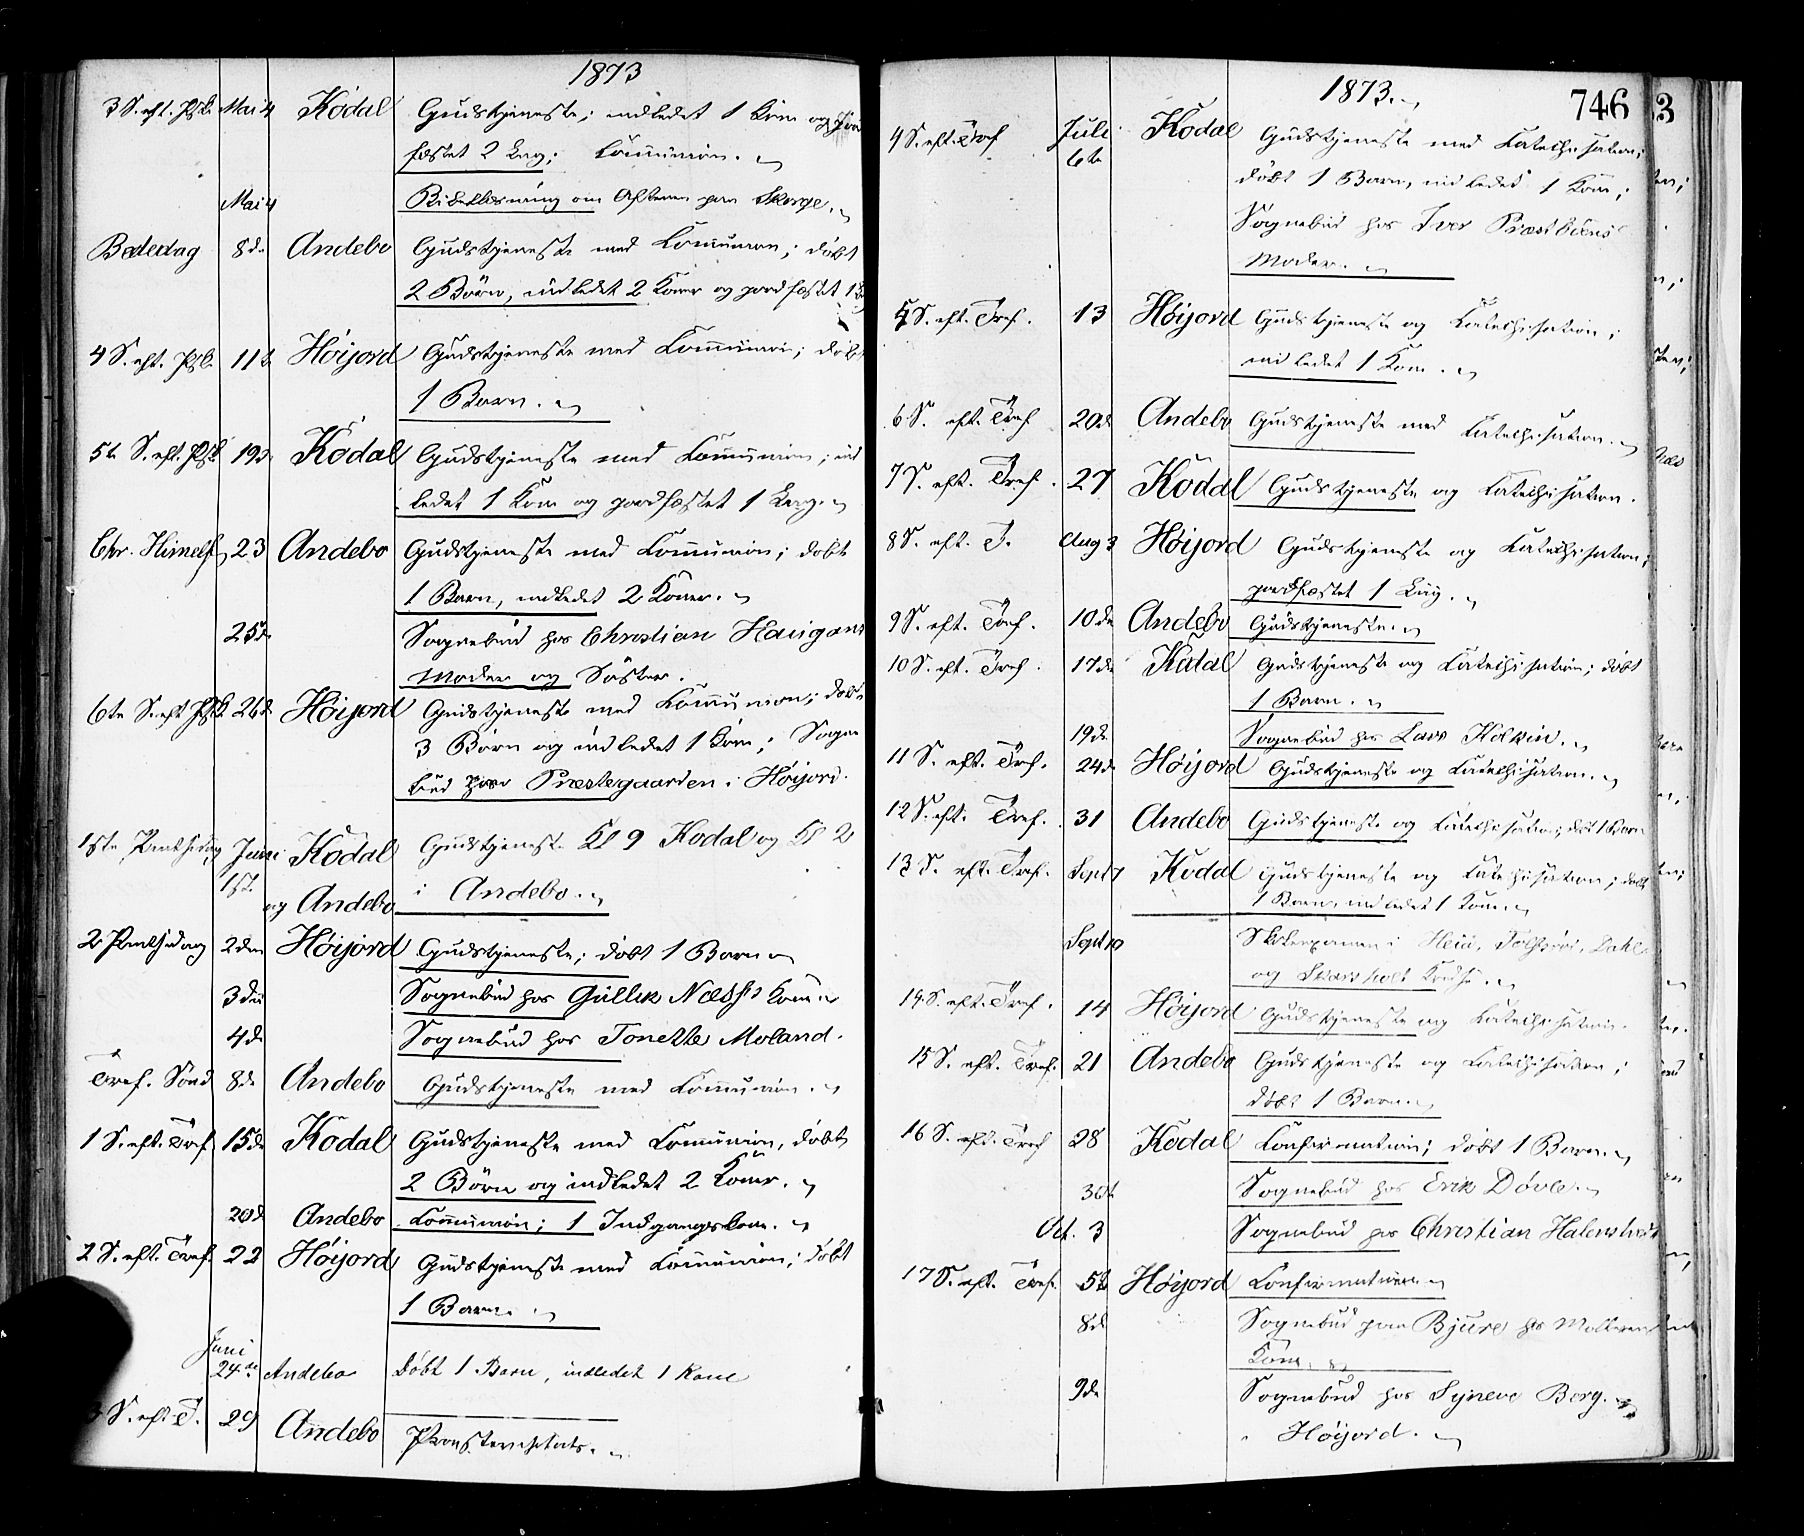 1873
3 S. eft. Pske Mai 4 Kodal Gudstjeneste; indledet 1 Kone og jord
fæstet 2 Lig; Communion.
Mai 4 Bibellæsning om Aftenen paa Skorge.
Bededag 8de Andebo Gudstjeneste med Communion; døbt
2 Börn, indledet 2 Koner og jordfæstet 1 Lig
4 S. eft. Pske 11te Höijord Gudstjeneste med Communion; döbt
1 Barn.
5te S. eft. Pske 19de Kodal Gudstjeneste med Communion; ind
ledet 1 Kone og jordfæstet 1 Lig.
Chr. Himelf 23 Andebo Gudstjeneste med Communion; döbt
1 Barn, indledet 2 Koner.
25de Sognebud hos Christian Haugans
Moder og Söster.
6te S. eft Pske 26de Höijord Gudstjeneste med Communion; döbt
3 Börn og indledet 1 Kone; Sogne
bud paa Præstegaarden i Höijord.
1ste Pintsedag Juni Kodal Gudstjeneste Kl 9 Kodal og Kl 2
1ste og Andebo i Andebo.
2 Pintsedag 2den Höijord Gudstjeneste; döbt 1 Barn
3die Sognebud hos Gullik Næss's Kone
4de Sognebud hos Tonette Moland.
Tref. Sönd 8de Andebo Gudstjeneste med Communion.
1 S. eft. Tref 15de Kodal Gudstjeneste med Communion, döbt
2 Börn og indledet 2 Koner.
20de Andebo Communion; 1 Indgangskone.
2 S. eft. Tref. 22 Höijord Gudstjeneste med Communion; döbt
1 Barn.
Juni
24de Andebo Döbt 1 Barn, indledet 1 Kone
3 S. eft T. 29 Andebo
1873. 746 3
4 S. eft. Tref Juli Kodal Gudstjeneste med Catechisation;
6te döbt 1 Barn, indledet 1 Kone;
Sognebud hos Iver Præstböens
Moder.
5 S. eft. Tref. 13 Höijord Gudstjeneste og Catechisation;
indledet 1 Kone.
6 S. eft. Tref 20de Andebo Gudstjeneste med Catechisation.
7 S. eft. Tref. 27 Kodal Gudstjeneste og Catechisation.
8 S. eft. T. Aug 3 Höijord Gudstjeneste og Catechisation;
jordfæstet 1 Lig.
9 S. eft. Tref. 10de Andebo Gudstjeneste.
10 S. eft. Tref. 17de Kodal Gudstjeneste og Catechisation; döbt
1 Barn.
19de Sognebud hos Lars
11 S. eft. Tref. 24de Höijord Gudstjeneste og Catechisation.
12 S. eft. Tref. 31 Andebo Gudstjeneste og Catechisation; döbt 1 Barn
13 S. eft. Tref. Sept 7 Kodal Gudstjeneste og Catechisation; döbt
1 Barn, indledet 1 Kone.
Sept 10 Skoleexamen i Heia, Dahl
og Skarsholt Kreds.
14 S. eft. Tref. 14 Höijord Gudstjeneste og Catechisation.
15 S. eft. Tref. 21 Andebo Gudstjeneste og Catechisation;
döbt 1 Barn.
16 S. eft. Tref 28 Kodal Confirmation; döbt 1 Barn.
30te Sognebud hos Erik Dövle.
Oct. 3 Sognebud hos Christian
17 S. eft. Tref. 5te Höijord Confirmation
8de Sognebud paa Bjure hos
Kone.
9de Sognebud hos Syneve Berg.
Höijord.